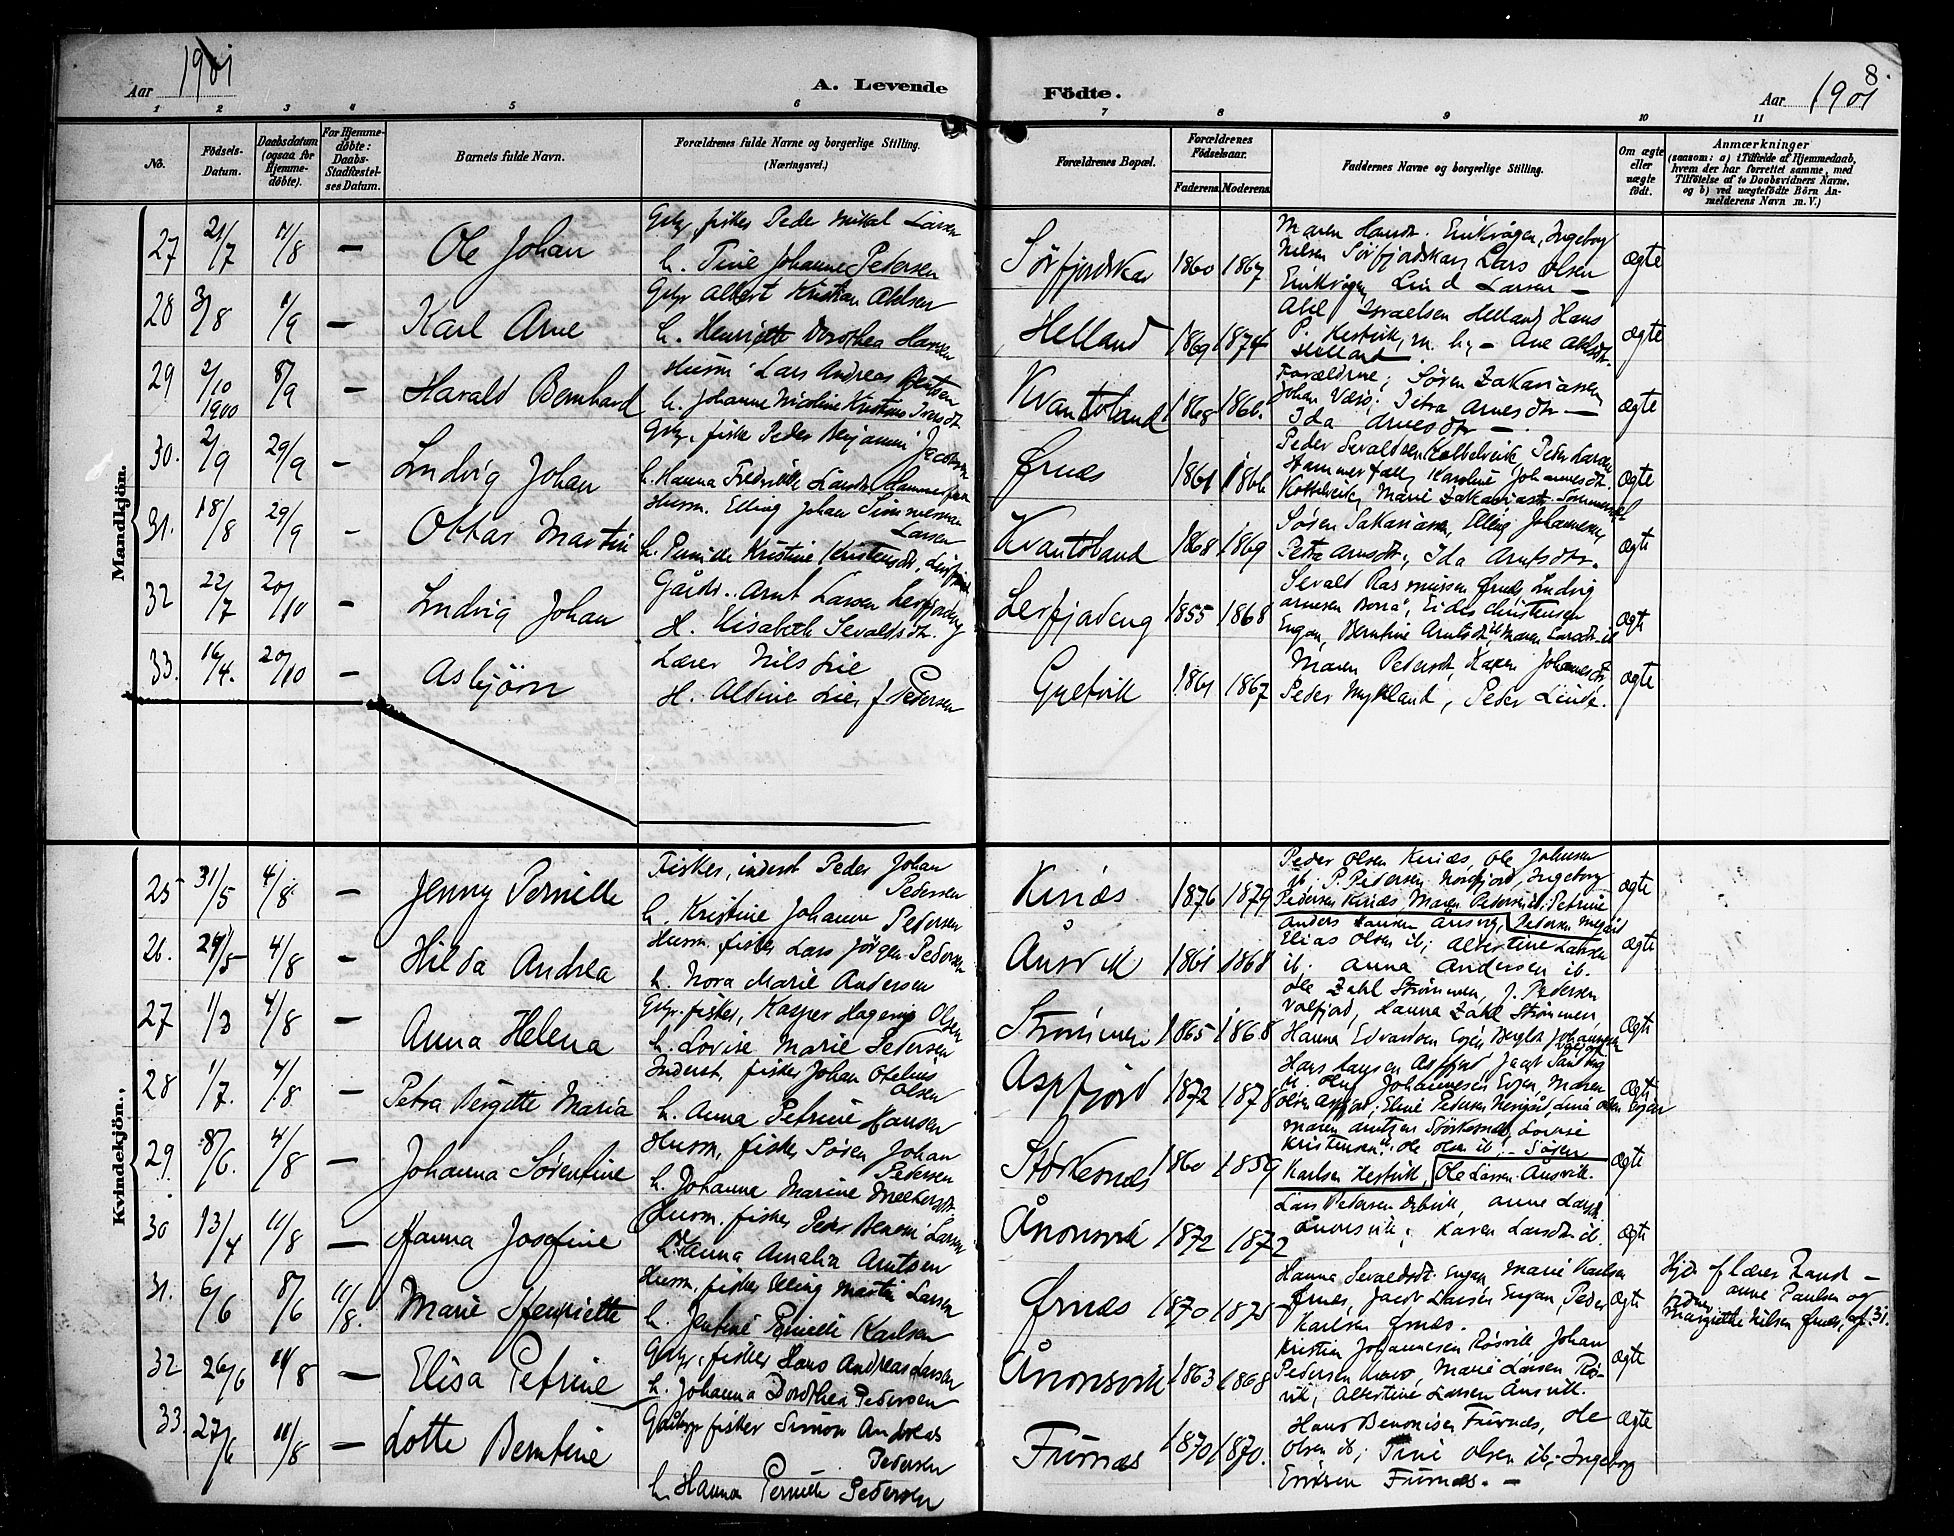 Aar 1901
A. Levende
Födte.
Aar 1901
8.
1 2 3 4 5 6 7 8 9 10 11
No.
Födsels-
Datum.
Daabsdatum
(ogsaa for
Hjemme-
döbte).
For Hjemme-
döbte:
Daabs-
Stadfæstel-
ses Datum.
Barnets fulde Navn.
Forældrenes fulde Navne og borgerlige Stilling.
(Næringsvei.)
Forældrenes Bopæl.
Forældrenes
Födselsaar.
Faderens. Moderens.
Faddernes Navne og borgerlige Stilling.
Om ægte
eller
uægte
födt.
Anmærkninger
(saasom: a) i Tilfælde af Hjemmedaab,
hvem der har forrettet samme, med
Tilföielse af to Daabsvidners Navne,
og b) ved uægtefödte Börn An-
melderens Navn m. V.)
Mandkjön.
27 21/7 11/8 — Ole Johan
Gbr. fisker Peder Mikal Larsen
h. Tine Johanne Pedersen
Sørfjordskar 1860 1867
Maren Hansdt. Erikvågen, Ingeborg
Nilsen Sørfjordskar, Lars Olsen
Erikvågen Larsen —
ægte
28 3/8 1/9 — Karl Arne
Gbr. Albert Kristian Abelsen
h. Henriette Dorothea Hansen
Helland 1869 1874
Abel Israelsen Helland Hans
P. Hestvik, m. h. — Ane Abelsdt.
Helland
ægte
29 2/10 1900 8/9 — Harald Bernhard
Husm. Lars Andreas
h. Johanne Nicoline Kristine
Kvantoland 1868 1866.
Forældrene; Søren Zakariassen
Johan Petra Arnesdtr —
Ida Arnesdtr —
ægte
30. 2/9 29/9 — Ludvig Johan
Gbr. fisker Peder Benjamin Jacobsen
h. Hanna Fredrikke Larsdtr. Hammerfall
Ørnes 1861 1866
Peder Sevaldsen Kobbelvik, Peter Larsen
Hammerfall, Karoline Johannesdt.
Kobbelvik, Marie Zakariasdt.
ægte
31. 18/8 29/9 — Ottar Martin
Husm. Elling Johan Simmerman
Larsen
h. Pernille Kristine Kristensdt.
Kvantoland 1868 1869
Søren Sakariassen, Elling Johannesen,
Petra Arntsdt., Ida Arntsdtr.
ægte
32 22/7 20/10 — Ludvig Johan
Gårdbr. Arnt Larsen Leifjordeng
H. Elisabeth Sevaldsdtr.
Leifjordeng 1855 1868
Sevald Rasmussen Ørnes, Ludvig
Arnesen Eidis Christensen
Engan, Berntine Arntsdt. ib, Maren Larsdt. ib
ægte
33. 16/4. 20/10 — Asbjörn
Lærer Nils Lie
H. Aldine Lie, f. Pedersen
1861 1867
Maren Pedersdt., Karen Johannesdt.
Peder Myklland, Peder Linde.
ægte
Kvindekjön.
25 31/5 4/8 — Jenny Pernille
Fisker, inderst Peder Johan
Pedersen
h. Kristine Johanne Pedersen
Kinæs 1876 1879
Peder Olsen Kinæs, Ole Johnsen
ib. P. Pedersen Nordfjord, Ingeborg
Pedersen Kinæs, Maren Petrine
ægte
26. 24/5 4/8 — Hilda Andrea
Husm. fisker Lars Jørgen Pedersen
h. Nora Marie Andersen
Ånsvik 1861 1868
Anders Hansen Ånsvig, Pedersen
Elias Olsen ib; Albertine Larsen
ib. Anna Andersen ib.
ægte
27 1/3 4/8 — Anna Helena
Gbr. fisker, Kasper Hagerup Olsen
h. Lovise Marie Pedersen
Strømmen 1865 1868
Ole Zahl Strømmen, J. Pedersen
Valfjord, Hanna Zahl Strømmen
Hanna Edvardsen Evjen, Johannesen
Valfjord
ægte
28 1/7. 4/8 — Petra Birgitte Maria
Inderst, fisker Johan Otelius
Olsen
h. Anna Petrine Hansen
Aspfjord 1872 1878
Hans Hansen Aspfjord Jacob
Oluf Johannesen Evjen, Maren
Olsen Aspfjord; Eline Pedersen Lina Olsen Evjen
ægte
29. 8/6. 4/8 — Johanna Sørentine
Husm. fisker Søren Johan
Pedersen
h. Johanne Marine
Størkernes 1860 1859
Maren Arntsen Størkernes, Lovise
Kristensen ib. Ole Olsen ib. — Søren
Karlsen Hestvik, Ole Larsen Ånsvik.
ægte
30 13/4 11/8 — Hanna Josefine
Husm. fisker Peder Benoni Larsen
h. Anna Amalia Arntsen
Ånonsvik 1872 1872
Lars Pedersen Anne Larsdt.
Ånonsvik; Karen Larsdtr. ib.
ægte
31. 6/6 8/6 11/8. Marie Henriette
Husm. fisker Elling Martin Larsen
h. Jentine Pernille Karlsen
Ørnæs 1870 1875
Hanna Sevaldsdt. Engan, Marie Karlsen
Ørnes, Jacob Larsen Engan, Peder
Karlsen Ørnes.
ægte
Hjd. af lærer Rand —
Anne Paulsen og
Margrethe Nilsen Ørnes,
32 26/6 11/8 — Elisa Petrine
Gbr. fisker Hans Andreas Larsen
h. Johanna Dorthea Pedersen
Ånonsvik 1863 1868
Kristen Johannesen Røsvik, Johan
Pedersen Marie Larsen Røs-
vik; Albertine Larsen Ånsvik.
ægte
33. 27/6 11/8 — Lotte Berntine
Gårdbr. fisker Simon Andreas
Pedersen
h. Hanna Pernille Pedersen
Furnæs 1870 1870.
Hans Benonisen Furnæs, Ole
Olsen ib; Tine Olsen ib; Ingeborg
Eriksen Furnæs. —
ægte